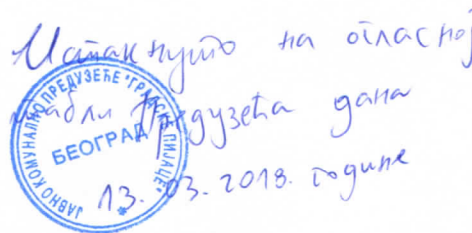 Истакнуто на огласној
табли Предузећа дана
13. 03. 2018. године
ЈАВНО КОМУНАЛНО ПРЕДУЗЕЋЕ "ГРАДСКЕ ПИЈАЦЕ"
БЕОГРАД